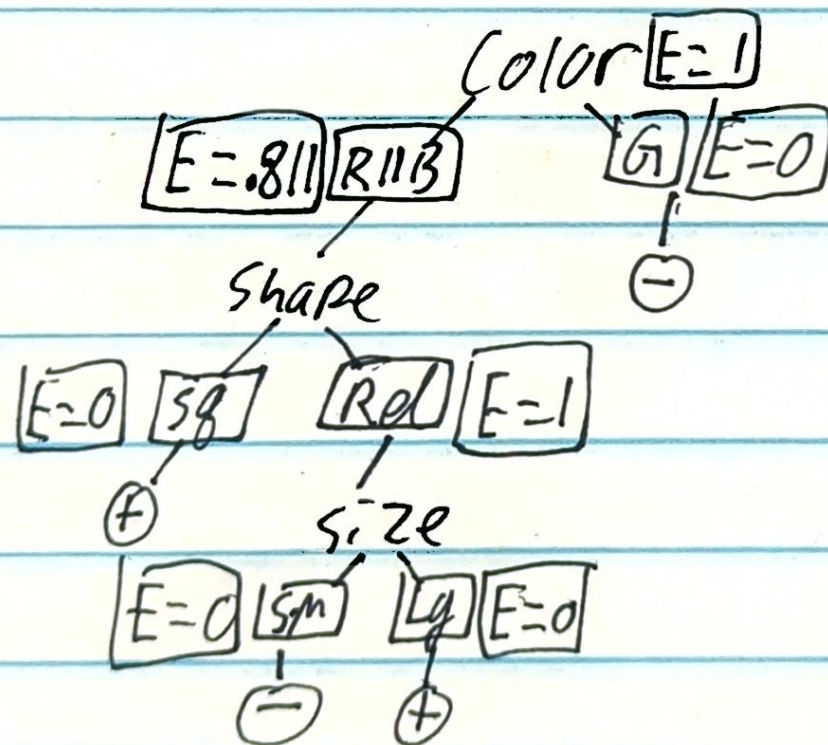 Color E=1
E=.811 R||B G E=0
−
Shape
E=0 Sq Rd E=1
+
Size
E=0 Sm Lg E=0
− +